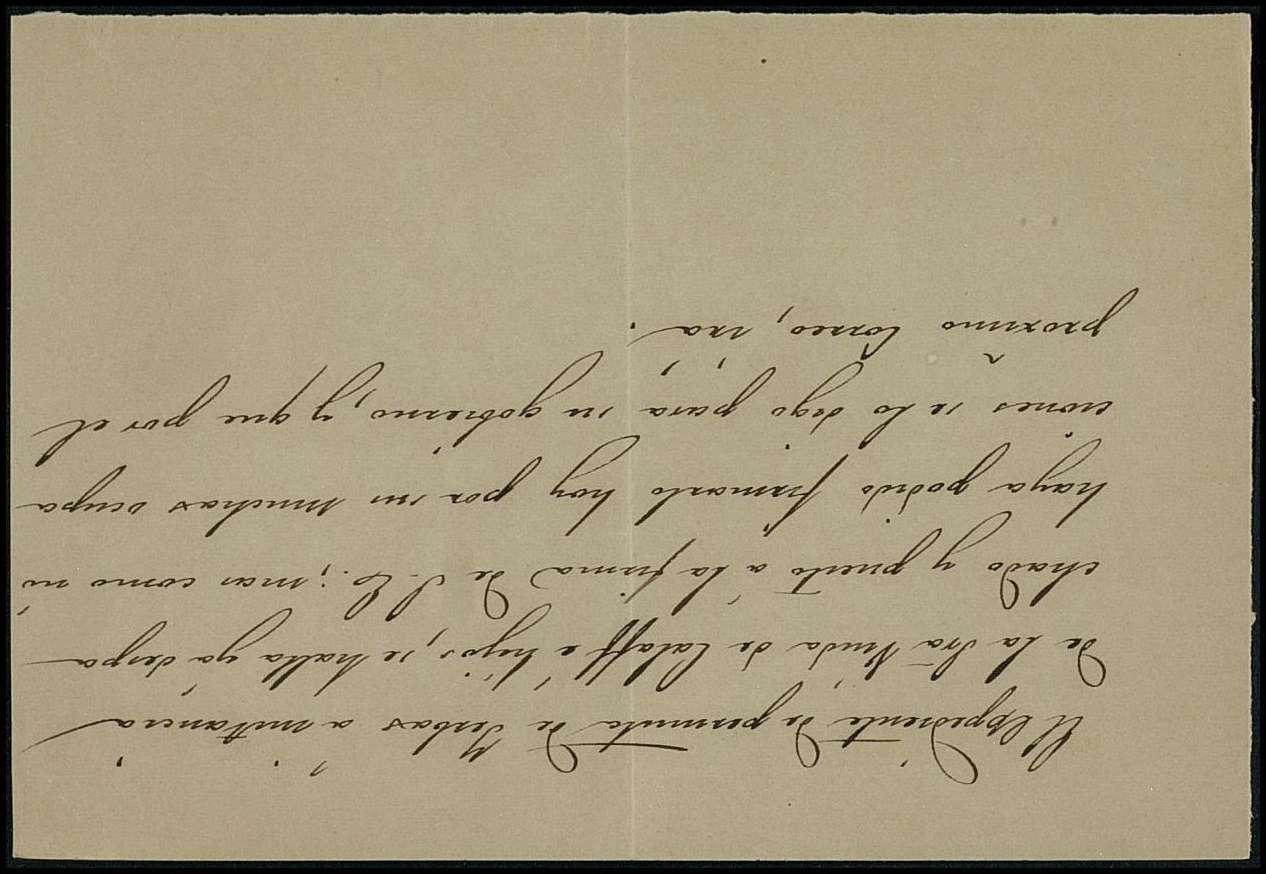 El Eppediente de permuta de Terbas á instancia
de la Srã Viuda de Calaff é hijos, se halla yá despa
chado y puesto á la firma de S. E.; mas como nó
haya podido firmarlo hoy por sus muchas ocupa
ciones se lo digo pará su gobierno, y que por el
proximo Correo, irá.